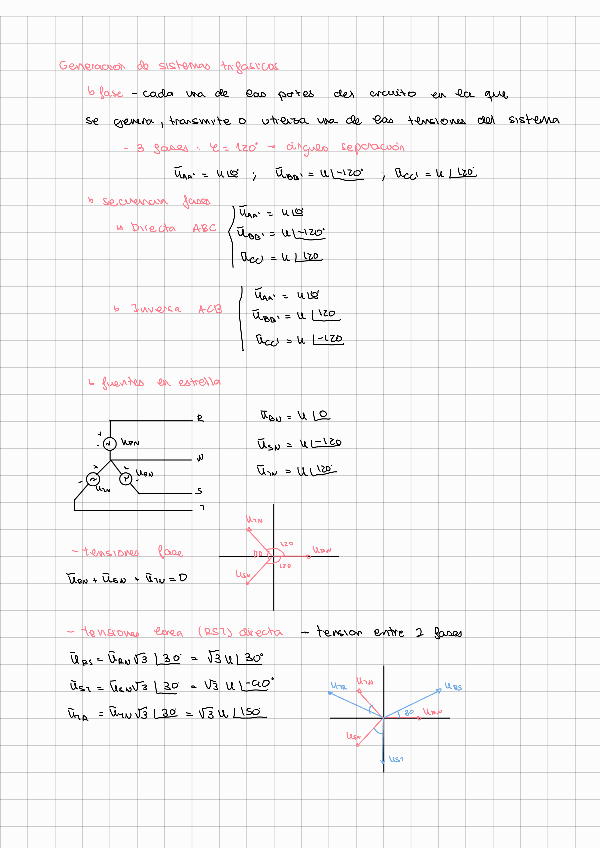 Generacion de sistemas trifasicos
↳ fase - cada una de las partes del circuito en la que
se genera, transmite o utiliza una de las tensiones del sistema
- 3 fases : φ = 120° → ángulo separación
ūAA' = u|0° ; ūBB' = u|-120° , ūCC' = u|120°
↳ Secuencia fases
↳ Directa ABC
ūAA' = u|0°
ūBB' = u|-120°
ūCC' = u|120
↳ Inversa ACB
ūAA' = u|0°
ūBB' = u|120
ūCC' = u|-120
↳ fuentes en estrella
R
URN
N
UTN
S
T
ūRN = u|0
ūSN = u|-120
ūTN = u|120°
UTN
120
URN
120
USN
- tensiones fase
ūRN + ūSN + ūTN = 0
- tensiones linea (RST) directa - tension entre 2 fases
ūRS = ūRN √3 |30° = √3 u|30°
ūST = ūSN √3 |30° = √3 u|-90°
ūTR = ūTN √3 |30° = √3 u|150°
UTR
UTN
URS
30
URN
USN
UST